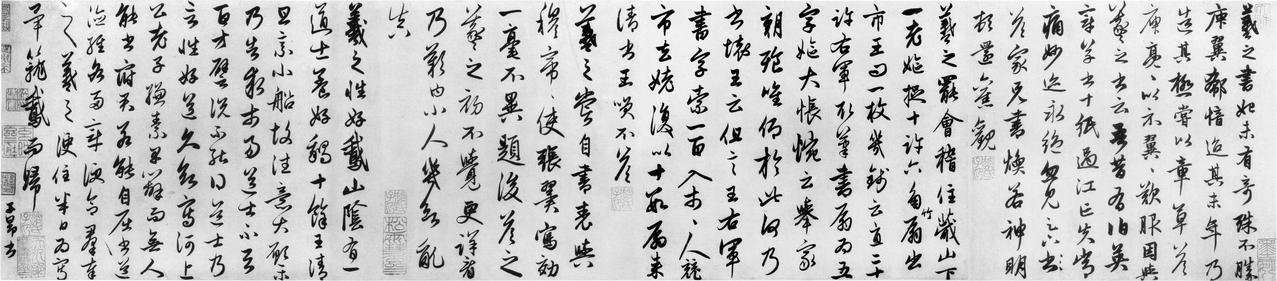 羲之書初未有奇殊不勝
庾翼郗愔迨其末年乃
造其極嘗以章草答
庾亮亮以示翼翼歎服因與
羲之書云吾昔有伯英
章草書十紙過江亡失常
痛妙迹永絕忽見
答家兄書煥若神明
頓還舊觀
羲之罷會稽住蕺山下
一老嫗捉十許六角竹扇出
市王問一枚幾錢云直二十
許右軍取筆書扇為五
字嫗大悵惋云舉家
朝飱唯仰於此何乃
書壞王云但言王右軍
書字索一百入市市人競
市去姥復以十數扇來
請書王笑不答
羲之嘗自書表與
穆帝帝使張翼寫效
一毫不異題後答之
羲之初不覺更詳看
乃歎曰小人幾欲亂
真
羲之性好鵝山陰有一
道士養好鵝十餘王清
旦乘小船故往意大願樂
乃告求市易道士不與
百方譬說不能得道士乃
言性好道久欲寫河上
公老子縑素早辦而無人
能書府君若能自屈書道
德經各兩章便合群奉
之羲之便住半日為寫
畢籠鵝而歸 子昂書